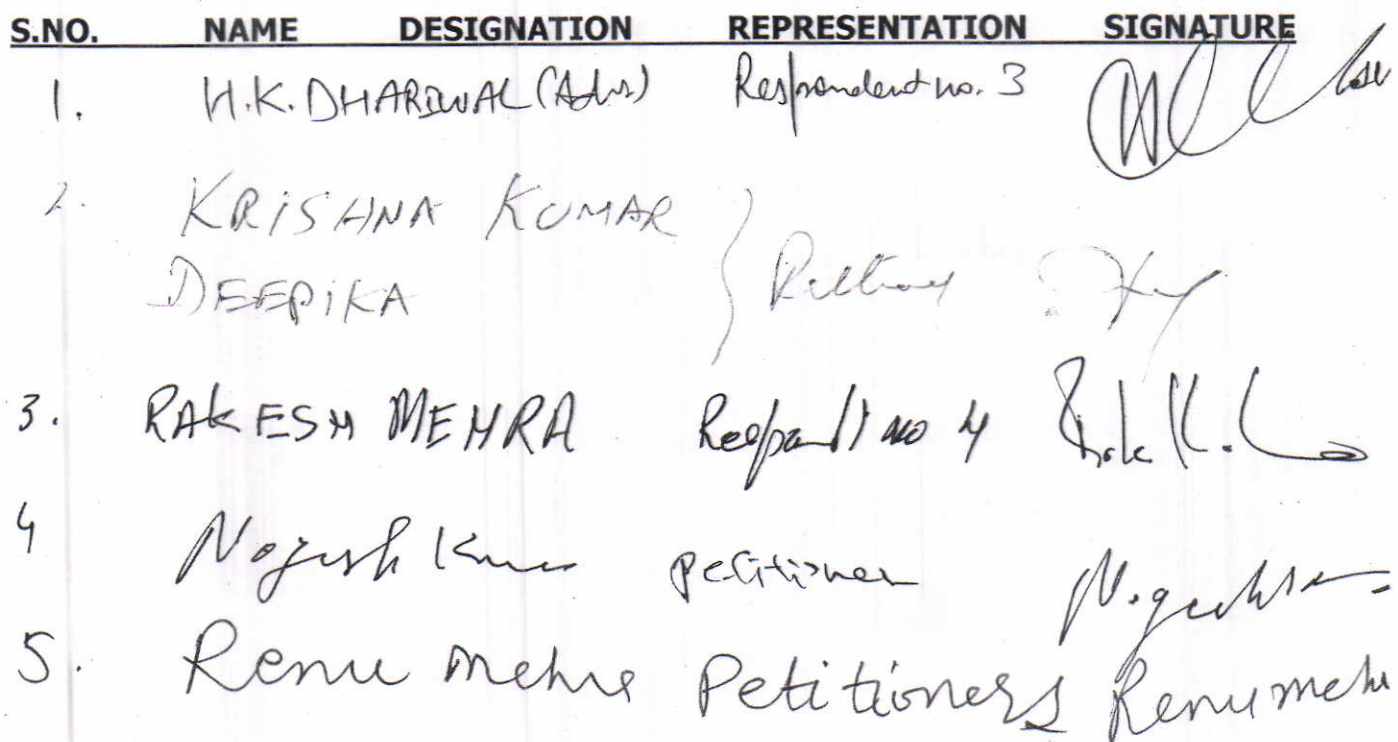 S.NO. NAME DESIGNATION REPRESENTATION SIGNATURE
1. H.K. DHARIWAL (Adv) Respondent no. 3
2. KRISHNA KUMAR
DEEPIKA
3. RAKESH MEHRA Respondt no 4
4 petitioner
5. Renu mehra Petitioners Renu mehra